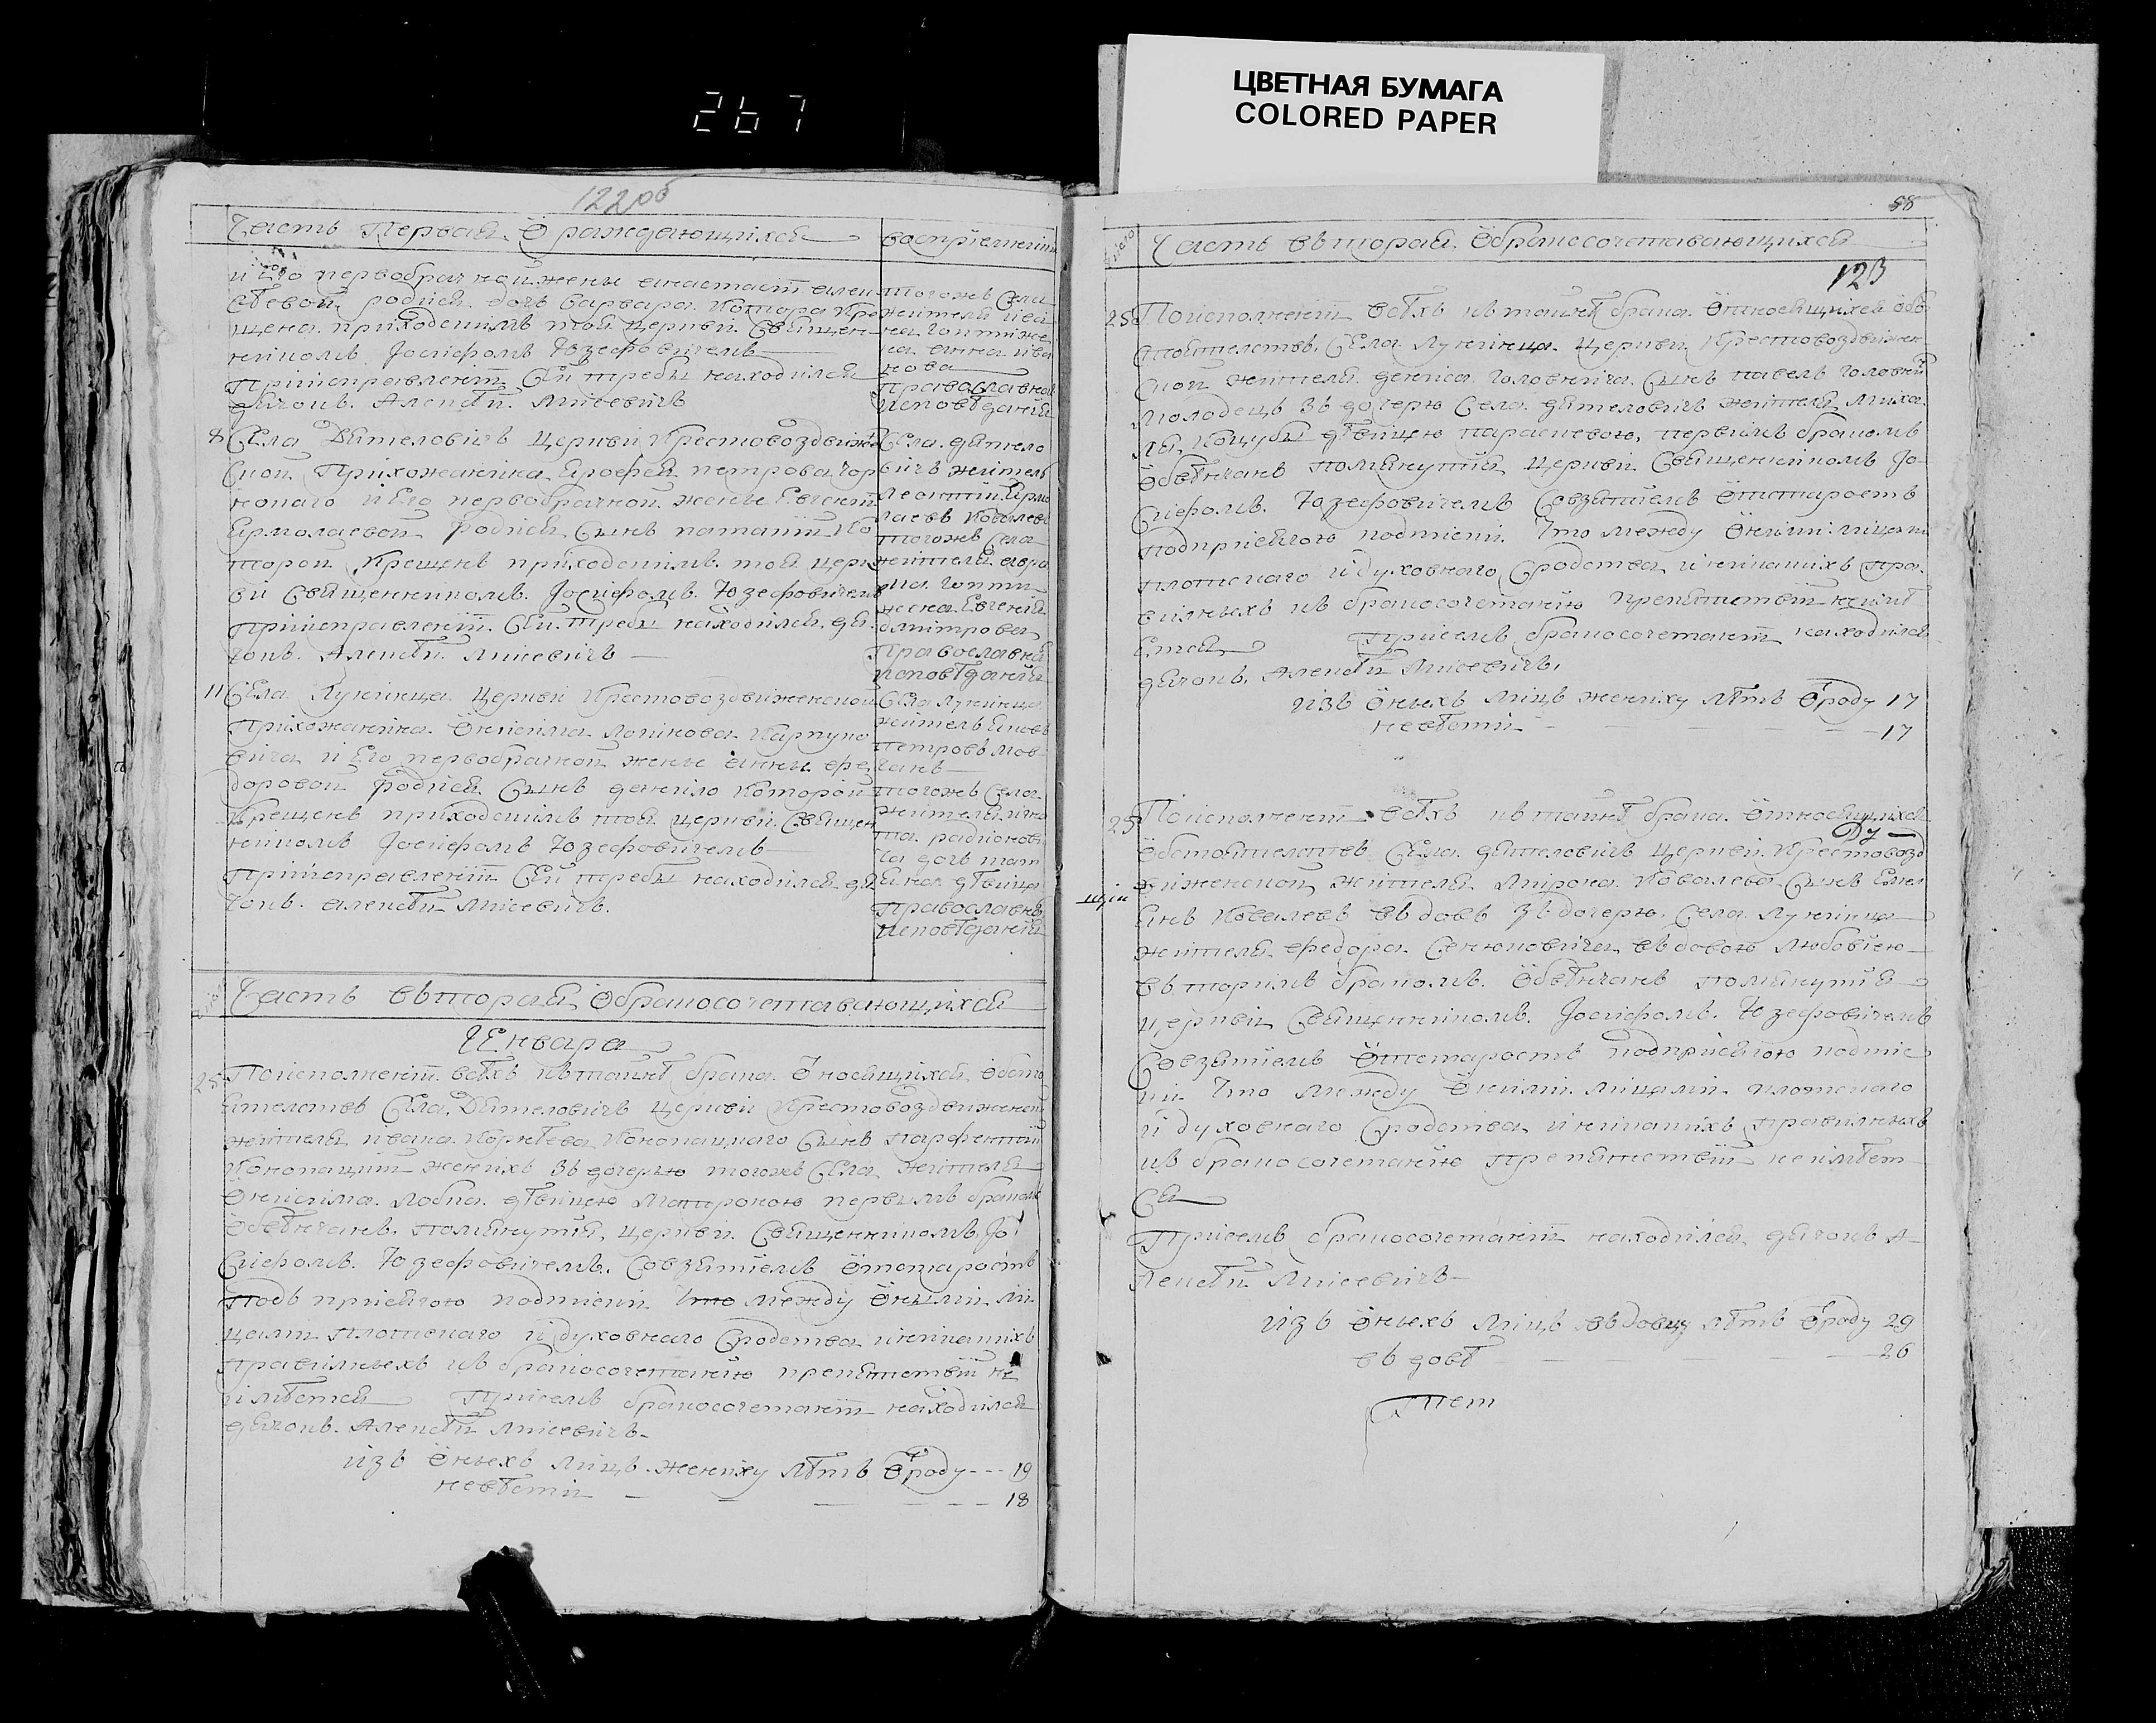 267
ЦВЕТНАЯ БУМАГА
COLORED PAPER
122об
Часть Первая. О раждающихся
восприемники
и Его первобрачной жены анастасіи алек
сѣевой родися дочь варвара котора кре
щена приходскимъ тоя церкви Священ
никомъ Іосифомъ Юзефовичемъ
Приисправленіи Сей требы находился
дячокъ Алексѣй Лисевичъ
тогожъ Села
жителя ива
на
жена анна ива
нова
Православна
исповѣданія
8 Села Дятеловичъ церкви Крестовоздвижен
ской Прихожанина Ерофея петрова
и Его первобрачной жены Евгеніи
Ермолаевой родися Сынъ потапій Ко
торой Крещенъ приходскимъ тоя церк
ви Священникомъ Іосифомъ Юзефовичемъ
Приисправленіи Сей требы находился дя
чокъ Алексѣй Лисевичъ
Села дятело
вичъ житель
Леонтій Ермо
лаевъ Ковалевъ
тогожъ Села
жителя
жена Евгенія
дмитрова
Православна
исповѣданія
11 Села Лунинца церкви Крестовоздвиженской
Прихожанина Онисима Логинова Карпуко
вича и Его первобрачной жены анны фе
доровой родися Сынъ данило которой
Крещенъ приходскимъ тоя церкви Священ
никомъ Іосифомъ Юзефовичемъ
Приисправленіи Сей требы находился дя
чокъ алексѣй Лисевичъ
Села Лунинца
житель Яковъ
петровъ
тогожъ Села
жителя
дочь тат
яна дѣвица
Православна
исповѣданія
Часть вторая Обракосочетавающихся
Генваря
25 Поисполненіи всѣхъ къ тайнѣ брака Относящихся Обсто
ятелствъ Села Дятеловичъ церкви Крестовоздвиженской
жителя ивана Корнѣева Конопацкого Сынъ парфентій
Конопацкій женихъ зъ дочерю тогожъ Села жителя
Онисима Лобка дѣвицею Матроною первымъ бракомъ
Обвѣнчанъ помянутыя церкви Священникомъ Іо
сифомъ Юзефовичемъ Совзятіемъ Отстаростъ
подъ присягою подписки что между Оными ли
цами плотскаго и духовнаго Сродства и никакихъ
правилныхъ къ бракосочетанію препятствій не
имѣется При семъ бракосочетаніи находился
дячокъ Алексѣй Лисевичъ
изъ Оныхъ лицъ жениху лѣтъ Отроду 19
невѣсти 18
58
Часть вторая Обракосочетавающихся
123
25 Поисполненіи всѣхъ къ тайнѣ брака Относящихся Обс
тоятелствъ Села Лунинца церкви Крестовоздвижен
ской жителя дениса Головнича Сынъ павелъ Головни
молодецъ зъ дочерю Села дятеловичъ жителя Миха
лы Коцубы дѣвицею параскевою первымъ бракомъ
Обвѣнчанъ помянутыя церкви Священникомъ Іо
сифомъ Юзефовичемъ Совзятіемъ Отстаростъ
подприсягою подписки что между Оними лицами
плотскаго и духовнаго Сродства и никакихъ пра
вилныхъ къ бракосочетанію препятствій неимѣ
Ется При семъ бракосочетаніи находился
дячокъ Алексѣй Лисевичъ
изъ Оныхъ лицъ жениху лѣтъ Отроду 17
невѣсти 17
25 Поисполненіи всѣхъ къ тайнѣ брака Относящихся
Обстоятелствъ Села дятеловичъ церкви Крестовозд
виженской жителя Мирона Ковалева Сынъ Емел
янъ Ковалевъ вдовъ зъ дочерю Села Лунинца
жителя федора Сенюковича вдовою Любовію
вторимъ бракомъ Обвѣнчанъ помянутыя
церкви Священникомъ Іосифомъ Юзефовичемъ
Совзятіемъ Отстаростъ подприсягою подпис
ки что между Оними лицами плотскаго
и духовнаго Сродства и никакихъ правилныхъ
къ бракосочетанію препятствій неимѣет
Ся
При семъ бракосочетаніи находился дячокъ А
лексѣй Лисевичъ
изъ Оныхъ лицъ вдовцу лѣтъ Отроду 29
вдовѣ 26